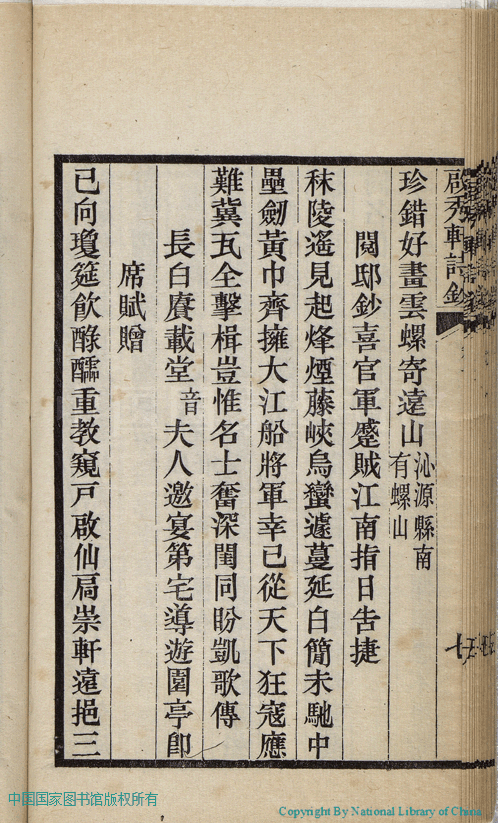 啟秀軒詩鈔
珍錯好畫雲螺寄遠山沁源縣南有螺山
閱邸鈔喜官軍蹙賊江南指日告捷
秣陵遙見起烽煙藤峽烏蠻遽蔓延白簡未馳中
壘劒黃巾齊擁大江船將軍幸已從天下狂寇應
難冀瓦全擊楫豈惟名士奮深閨同盼凱歌傳
長白賡載堂音夫人邀宴第宅導遊園亭卽
席賦贈
已向瓊筵飮醁醽重教窺戸啟仙扃崇軒遠挹三
中国国家图书馆版权所有
Copyright By National Library of China